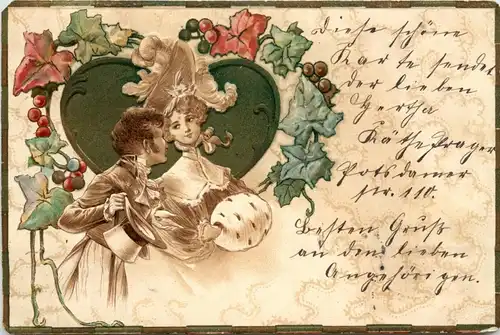 Diese schöne
Karte sendet
der lieben
Hertha
Käthe Prager
Potsdamer
str. 110.
Besten Gruß
an den lieben
Angehörigen.